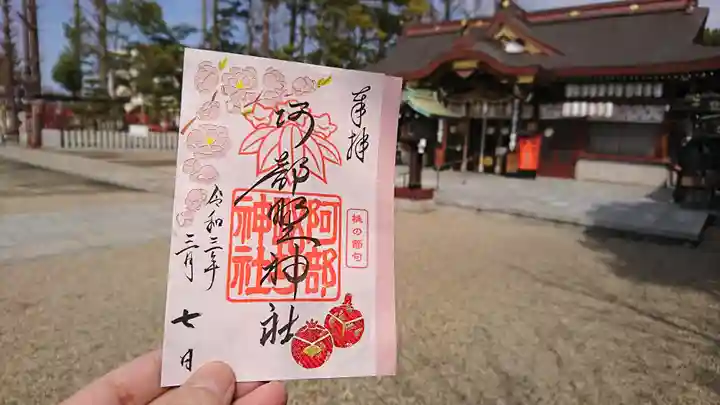 奉拝
阿部野神社
阿部野神社
桃の節句
令和三年
三月
七日